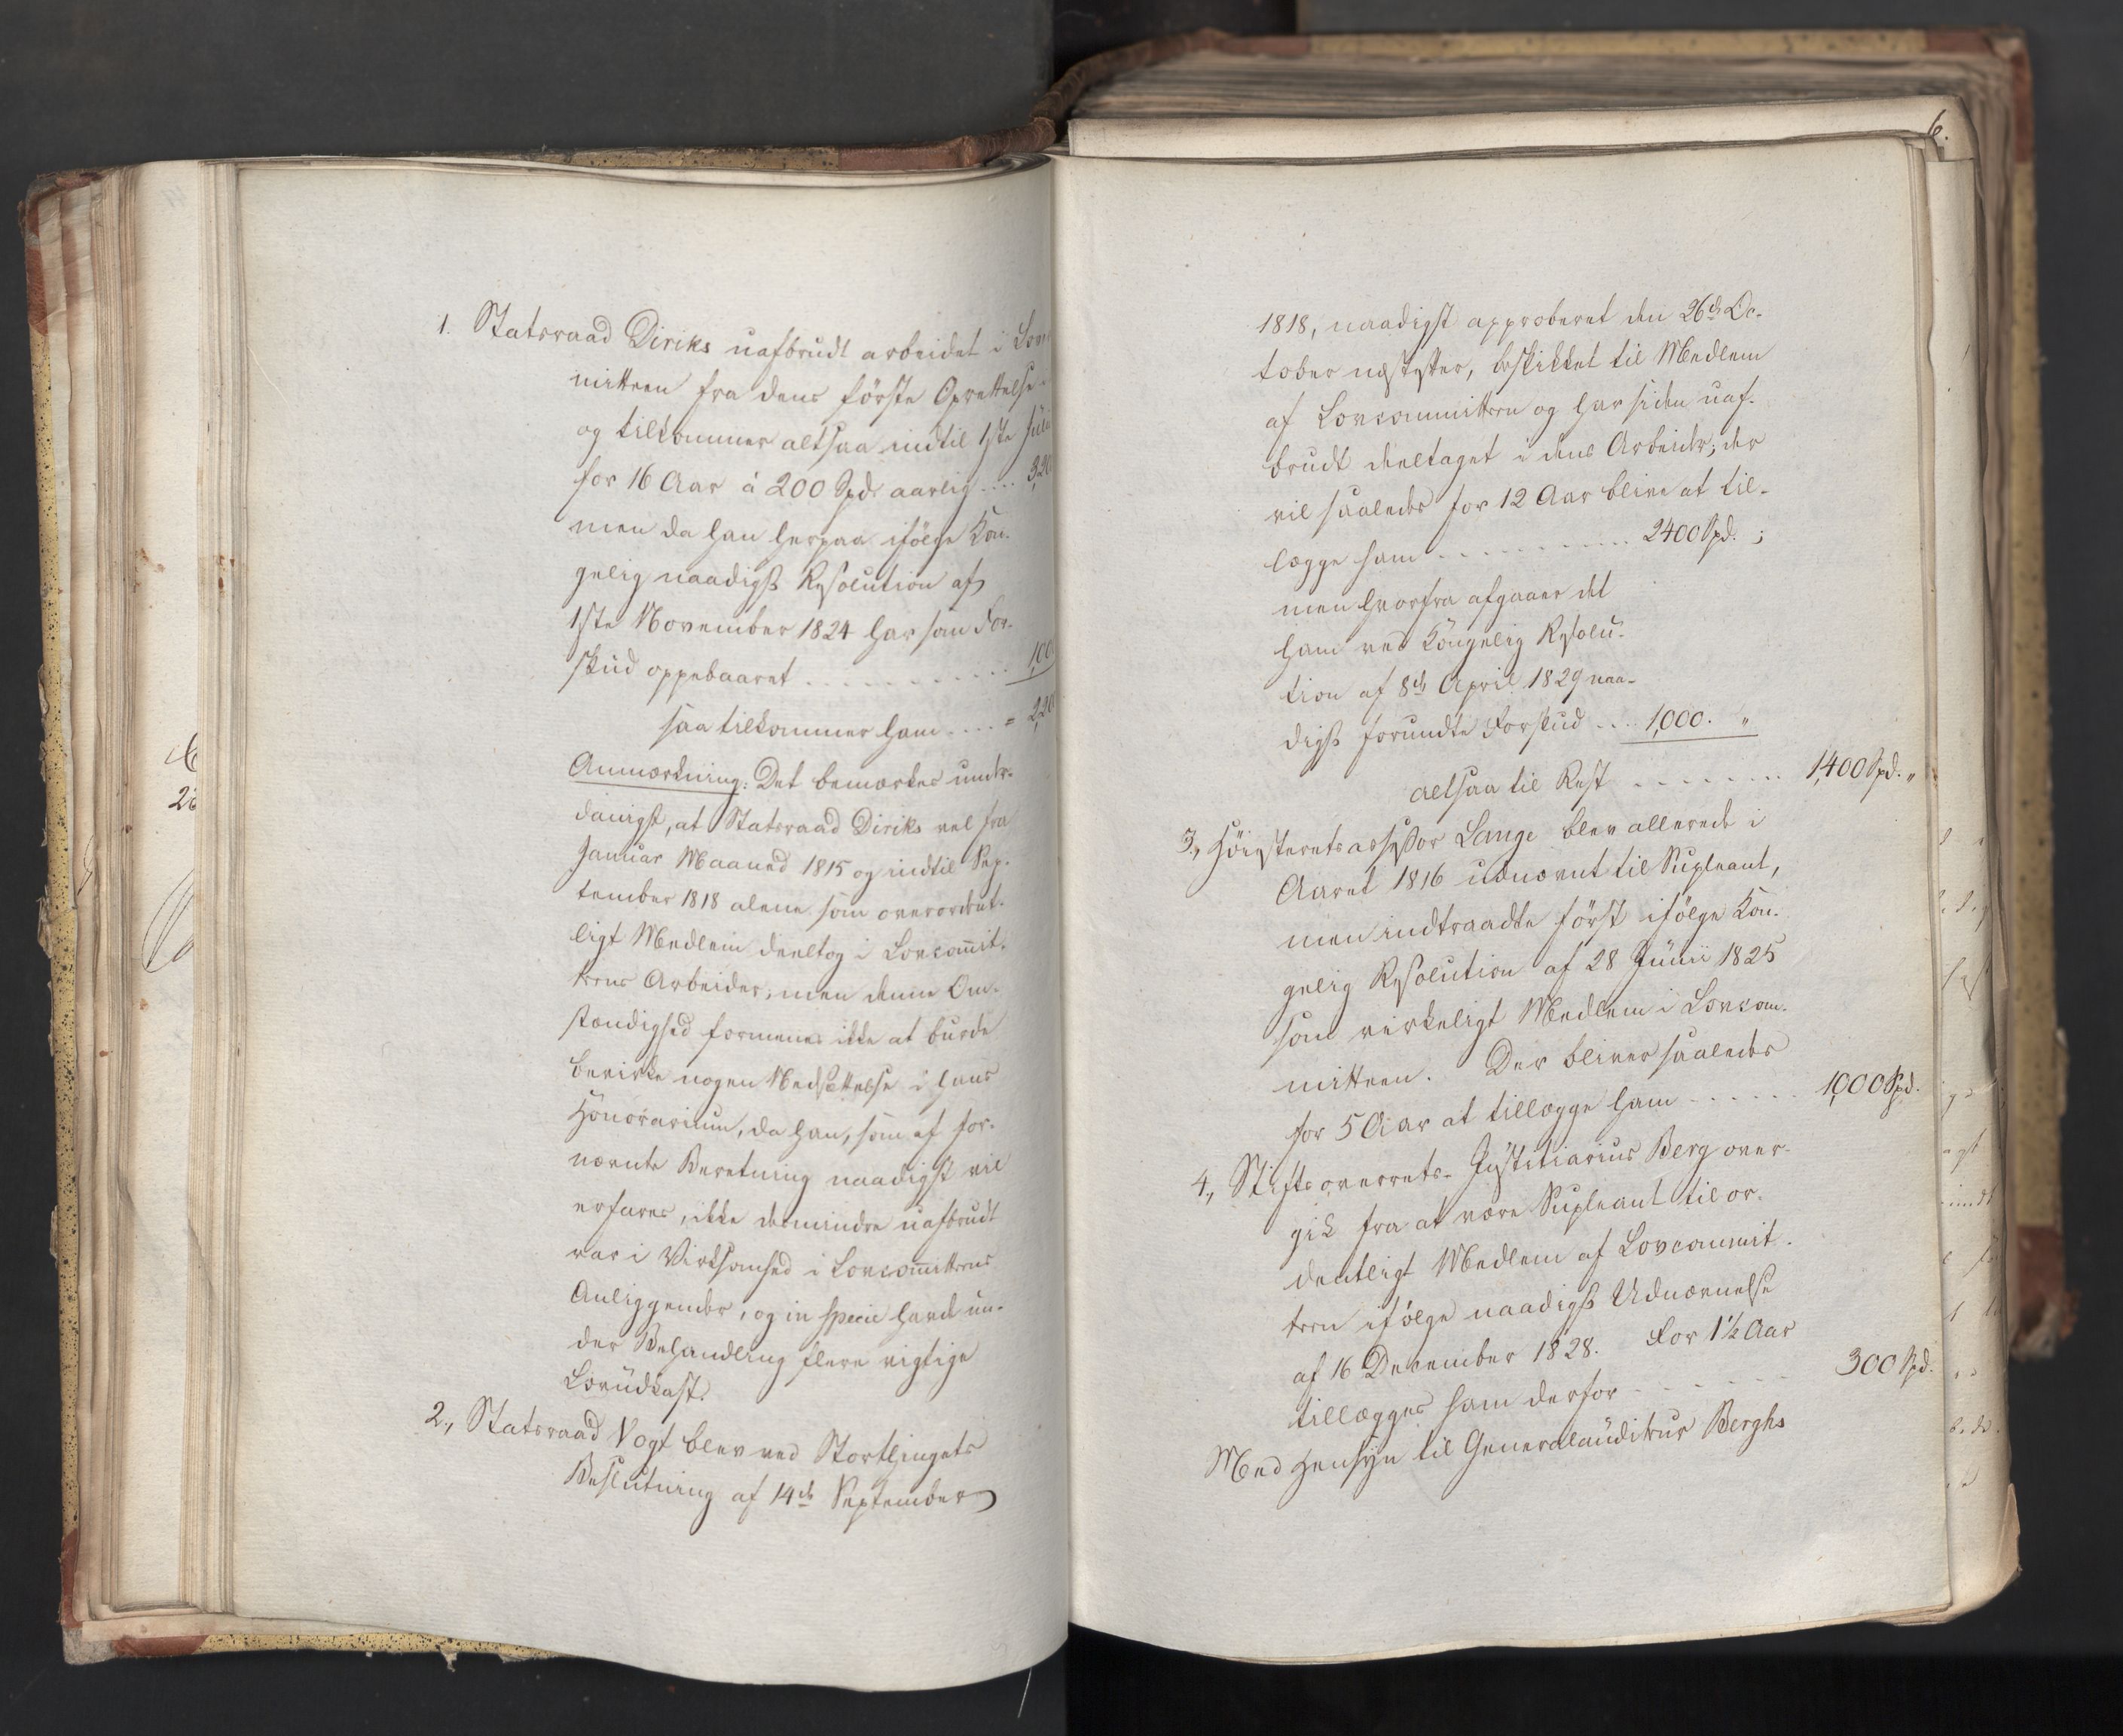 1. Statsraad Diriks uafbrudt arbeidet i Lov
mitteen fra dens förste Oprettelse
og tilkommer altsaa indtil 1ste Juli
for 16 Aar á 200 Spd. aarlig .... 3,20
men da han herpaa ifölge Kon-
gelig naadigst Resolution af
1ste November 1824 har som For-
skud oppebaaret ............ 1,00
saa tilkommer ham .... = 2,20
Anmærkning: Det bemærkes under-
danigst, at Statsraad Diriks vel fra
Januar Maaned 1815 og indtil Sep-
tember 1818 alene som overordent-
ligt Medlem deeltog i Lovcom̅it-
teens Arbeider; men denne Om-
stændighed formenes ikke at burde
bevirke nogen Nedsættelse i hans
Honorarium, da han, som af for-
nævnte Beretning naadigst vil
erfares, ikke desmindre uafbrudt
var i Virksomhed i Lovcom̅itteens
Anliggender, og in specie havde un-
der Behandling flere vigtige
Lovudkast.
2., Statsraad Vogt blev ved Storthingets
Beslutning af 14de September
6.
1818, naadigst approberet den 26de Oc-
tober næstefter, beskikket til Medlem
af Lovcommitteen og har siden uaf-
brudt deeltaget i dens Arbeider; der
vil saaledes for 12 Aar blive at til-
lægge ham ............ 2400 Spd. ;
men hvorfra afgaaer det
ham ved Kongelig Resolu-
tion af 8de April 1829 naa-
digst forundte Forskud .... 1,000. "
altsaa til Rest ........ 1,400 Spd. "
3., Höiesteretsassessor Lange blev allerede i
Aaret 1816 udnævnt til Supleant,
men indtraadte först ifölge Kon-
gelig Resolution af 28 Junii 1825
som virkeligt Medlem i Lovcom-
mitteen. Der bliver saaledes
for 5 Aar at tillægge ham ...... 1,000 Spd.
4., Stiftsoverrets-Justitiarius Berg over-
gik fra at være Supleant til or-
dentligt Medlem af Lovcommit-
teen ifölge naadigst Udnævnelse
af 16 December 1828. For 1½ Aar
tillægges ham derfor ...... 300 Spd.
Med Hensyn til Generalauditeur Berghs